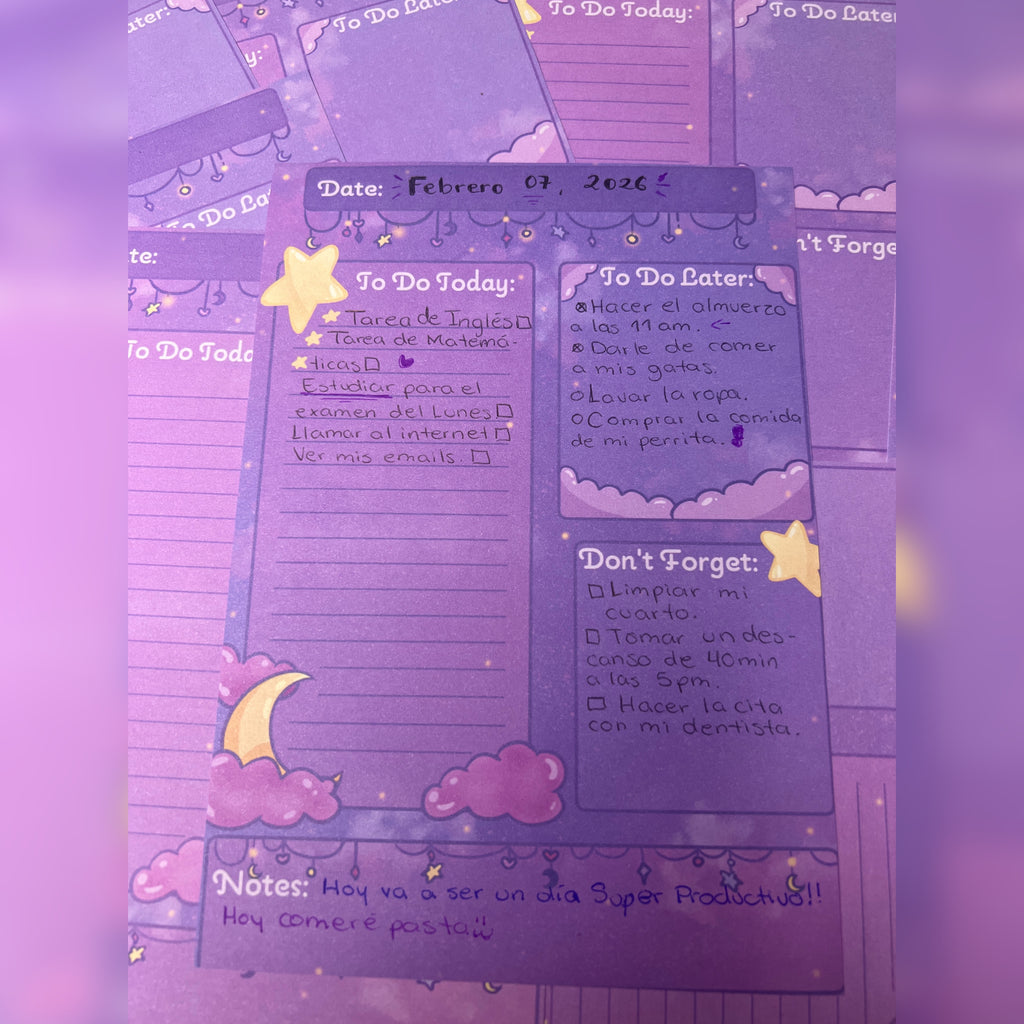 ater:
To Do Later
To Do Today:
To Do Later:
y:
To Do La
Date: Febrero 07, 2026
te:
n't Forge
To Do Toda
To Do Today:
Tarea de Inglés
Tarea de Matemá-
ticas
Estudiar para el
examen del Lunes
Llamar al internet
Ver mis emails.
To Do Later:
Hacer el almuerzo
a las 11 am. ←
Darle de comer
a mis gatas.
Lavar la ropa.
Comprar la comida
de mi perrita.
Don't Forget:
Limpiar mi
cuarto.
Tomar un des-
canso de 40min
a las 5pm.
Hacer la cita
con mi dentista.
Notes: Hoy va a ser un día Super Productivo!!
Hoy comeré pasta